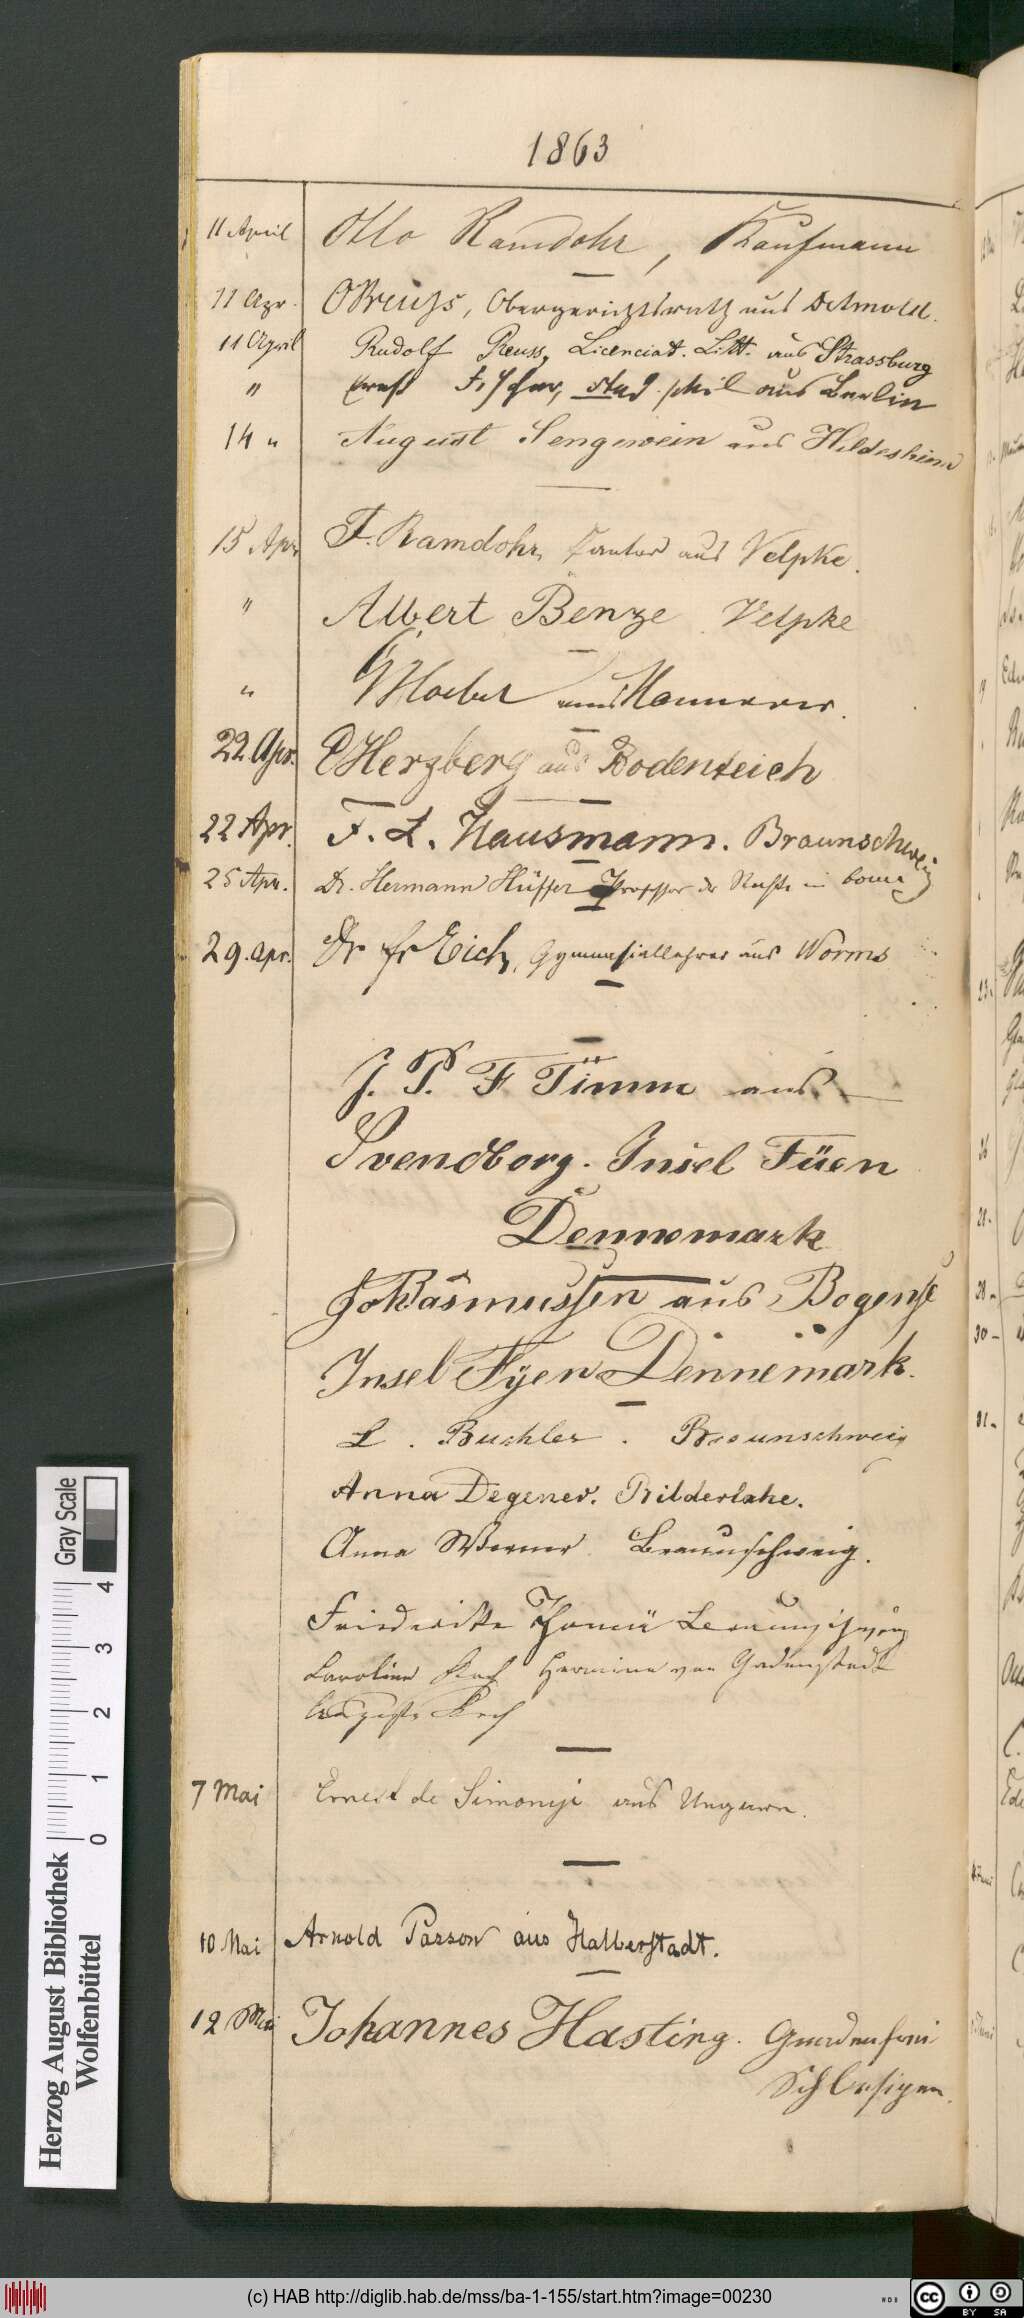 1863
11 April Otto Ramdohr, Kaufmann
11 Apr. OPreuss, Obergerichtsrath aus Detmold.
11 April Rudolf Reuss, Licenciat. Litt. aus Strassburg
" Ernst Fischer, stud. phil aus Berlin
14 " August Sengewein aus Hildesheim
15 Apr F. Ramdohr, Cantor aus Velpke.
" Albert Benze Velpke
" aus Hannover.
22 Apr. CHerzberg aus Bodenteich
22 Apr. F. L. Hausmann. Braunschweig
25 Apr. Dr. Hermann Hüffer Professor der Rechte in Bonn
29. Apr. Dr Fr Eich, Gymnasiallehrer aus Worms
J. P. F Timm aus
Svendborg. Insel Füen
Dennemark
Joh Rasmussen aus Bogense
Insel Fyen Dennemark.
L. Buchler. Braunschweig
Anna Degener. Rilderlahe.
Anna Werner Braunschweig.
Friedericke Braunschweig
Caroline Koch Hermine von Gadenstedt
Auguste Koch
7 Mai Ernest de Simonyi aus Ungarn.
10 Mai Arnold Passow aus Halberstadt.
12 Mai Johannes Hasting. Gnadenfrei
Schlesien.
Herzog August Bibliothek
Wolfenbüttel
0 1 2 3 4
Gray Scale
(c) HAB http://diglib.hab.de/mss/ba-1-155/start.htm?image=00230
cc BY SA